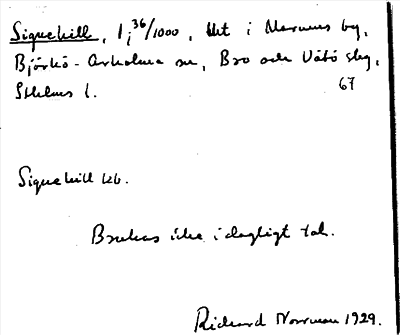 Siquekill, 1,36/1000, litt i Marums by,
Björkö-Arholma sn, Bro och Vätö skg,
Sthlms l. 67
Siquekill
Brukas icke i dagligt tal.
Rickard Norrman 1929.